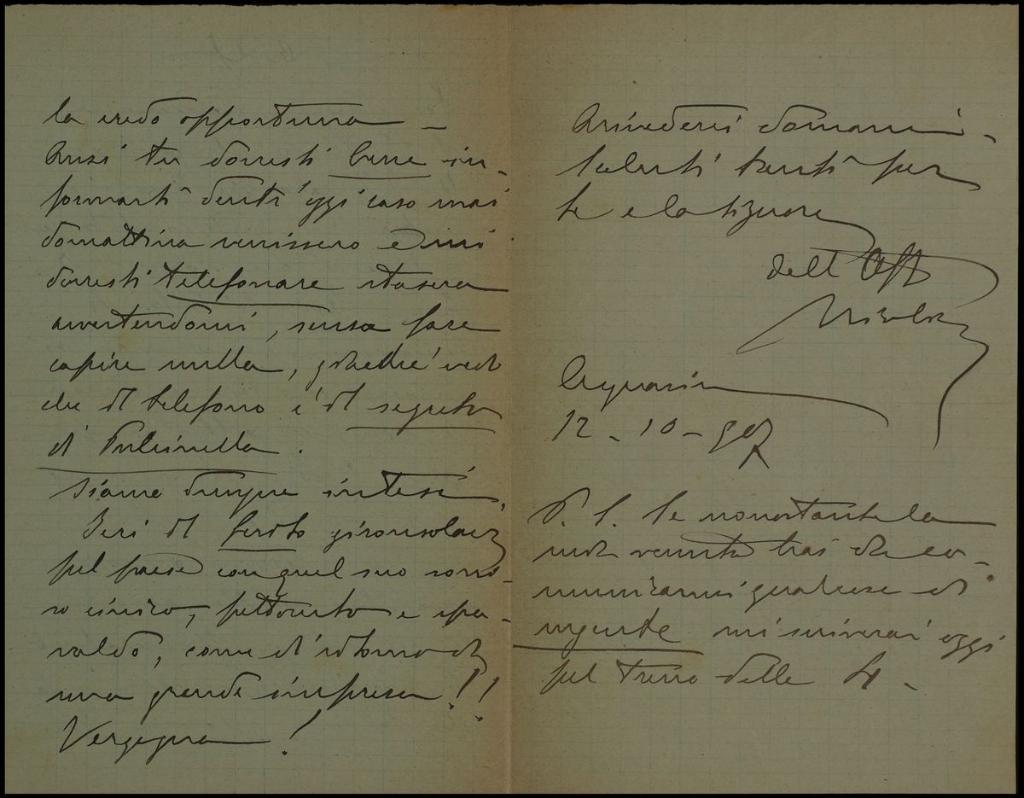 la credo opportuna —
Anzi tu dovresti bene in-
formarti dentr'oggi caso mai
domattina venissero e mi
dovresti telefonare stasera
avvertendomi, senza fare
capire nulla, poiché vedi
che il telefono è il segreto
di Pulcinella.
Siamo dunque intesi.
Ieri il gironzolava
pel paese con quel suo sorri-
so cinico, pettoruto e spa-
valdo, come di ritorno da
una grande impresa!!
Vergogna!
Arrivederci domani -
Saluti tanti per
te e la signora
dall' Aff
Acquaria
12 - 10 - 907
P. S. Se nonostante la
mia venuta hai da co-
municarmi qualcosa di
urgente mi scriverai oggi
pel treno delle 4 -